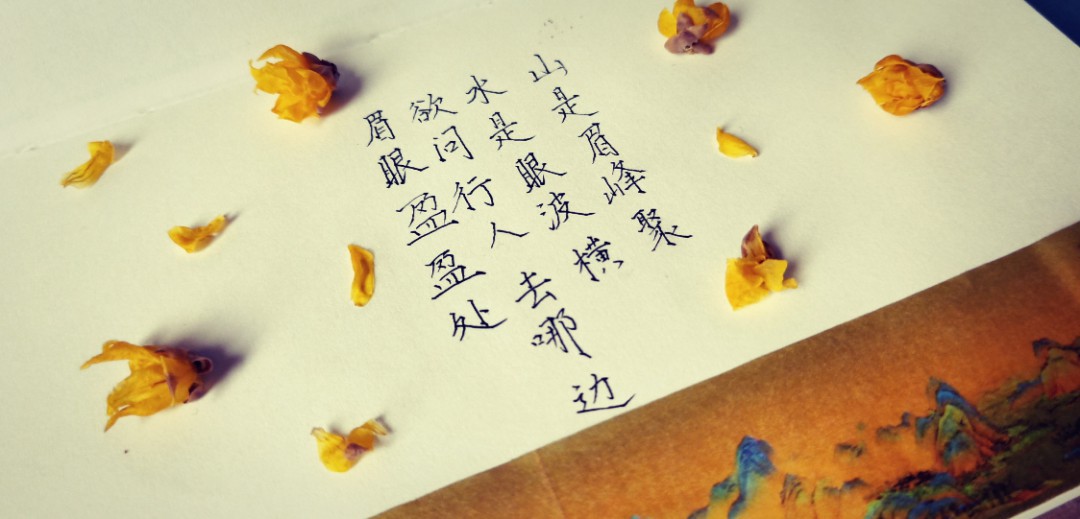 山是眉峰聚
水是眼波横
欲问行人去哪边
眉眼盈盈处